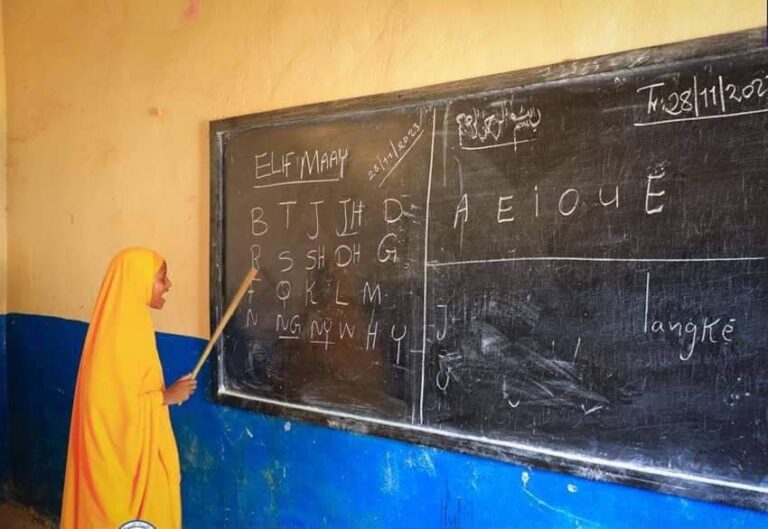 ELIF MAAY
28/11/2023
B T J JH D
R S SH DH G
F Q K L M
N NG NY W H Y
بسم الله الرحمن الرحيم
Tr, 28/11/202
A E i O U Ë
langkë